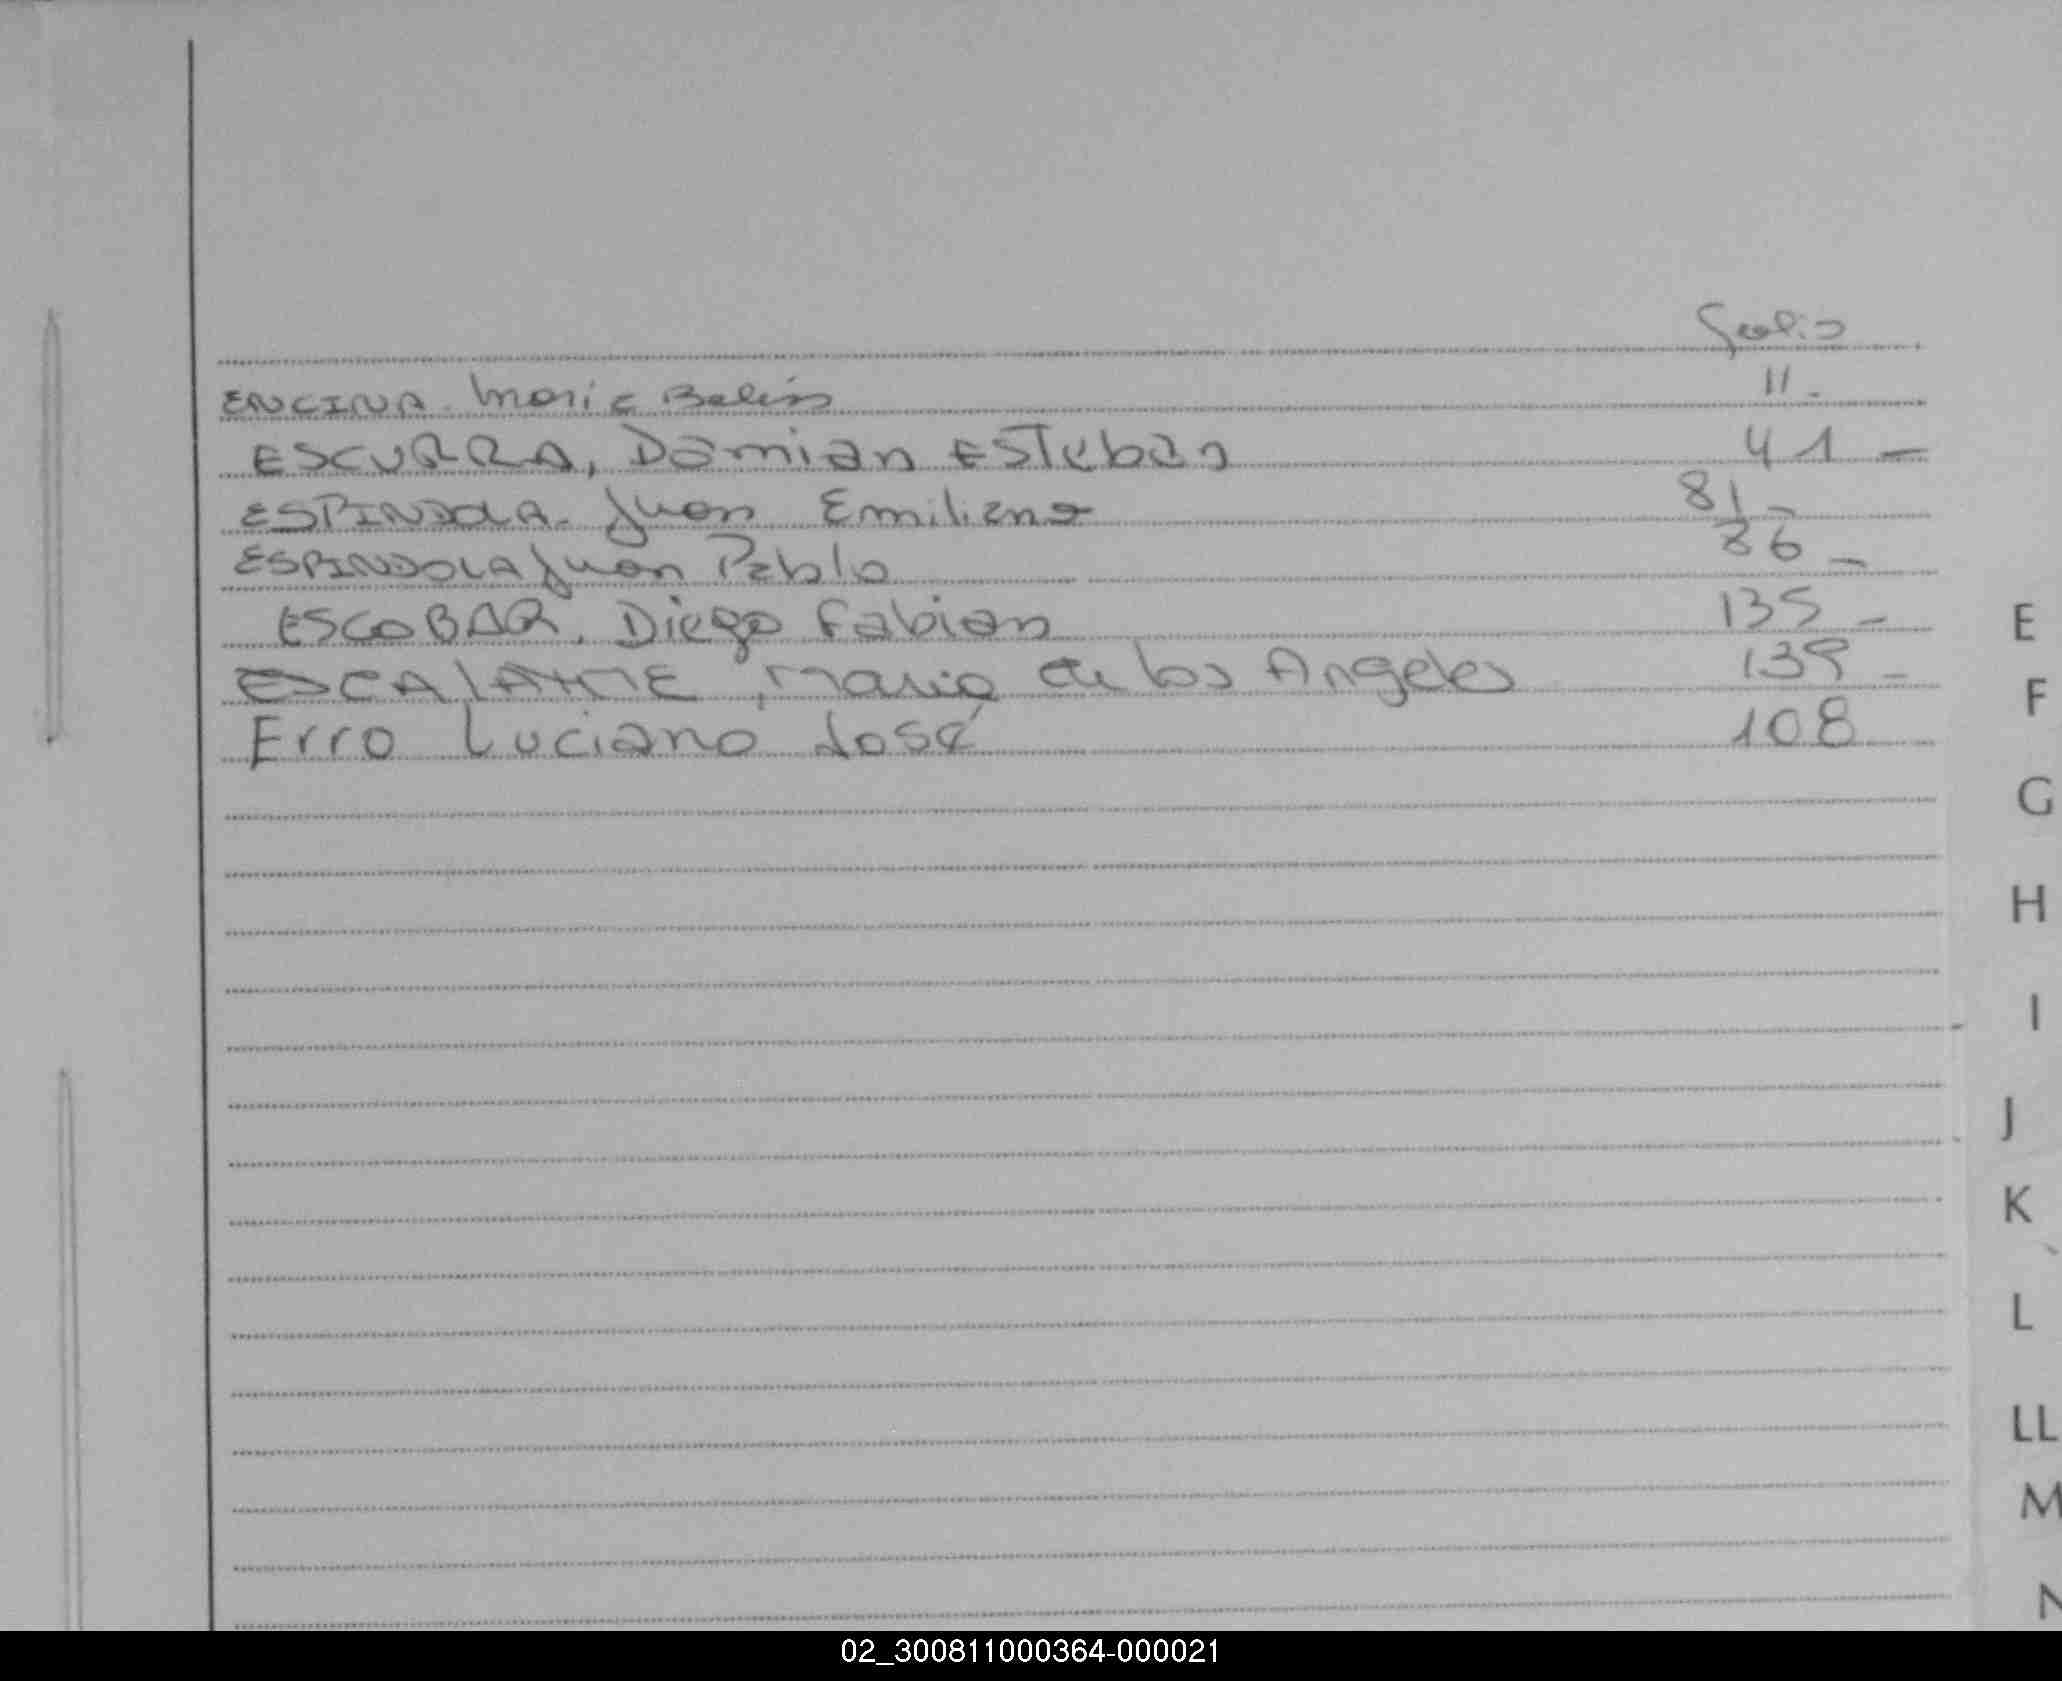 Folio
ENCINA. Maria Belén 11.
ESCURRA, Damian Esteban 41 -
ESPINDOLA. Juan Emiliano 81 -
ESPINDOLA Juan Pablo 86 -
ESCOBAR, Diego Fabian 135 -
ESCALANTE, Maria de los Angeles 139 -
Erro Luciano José 108
E
F
G
H
I
J
K
L
LL
M
N
02_300811000364-000021